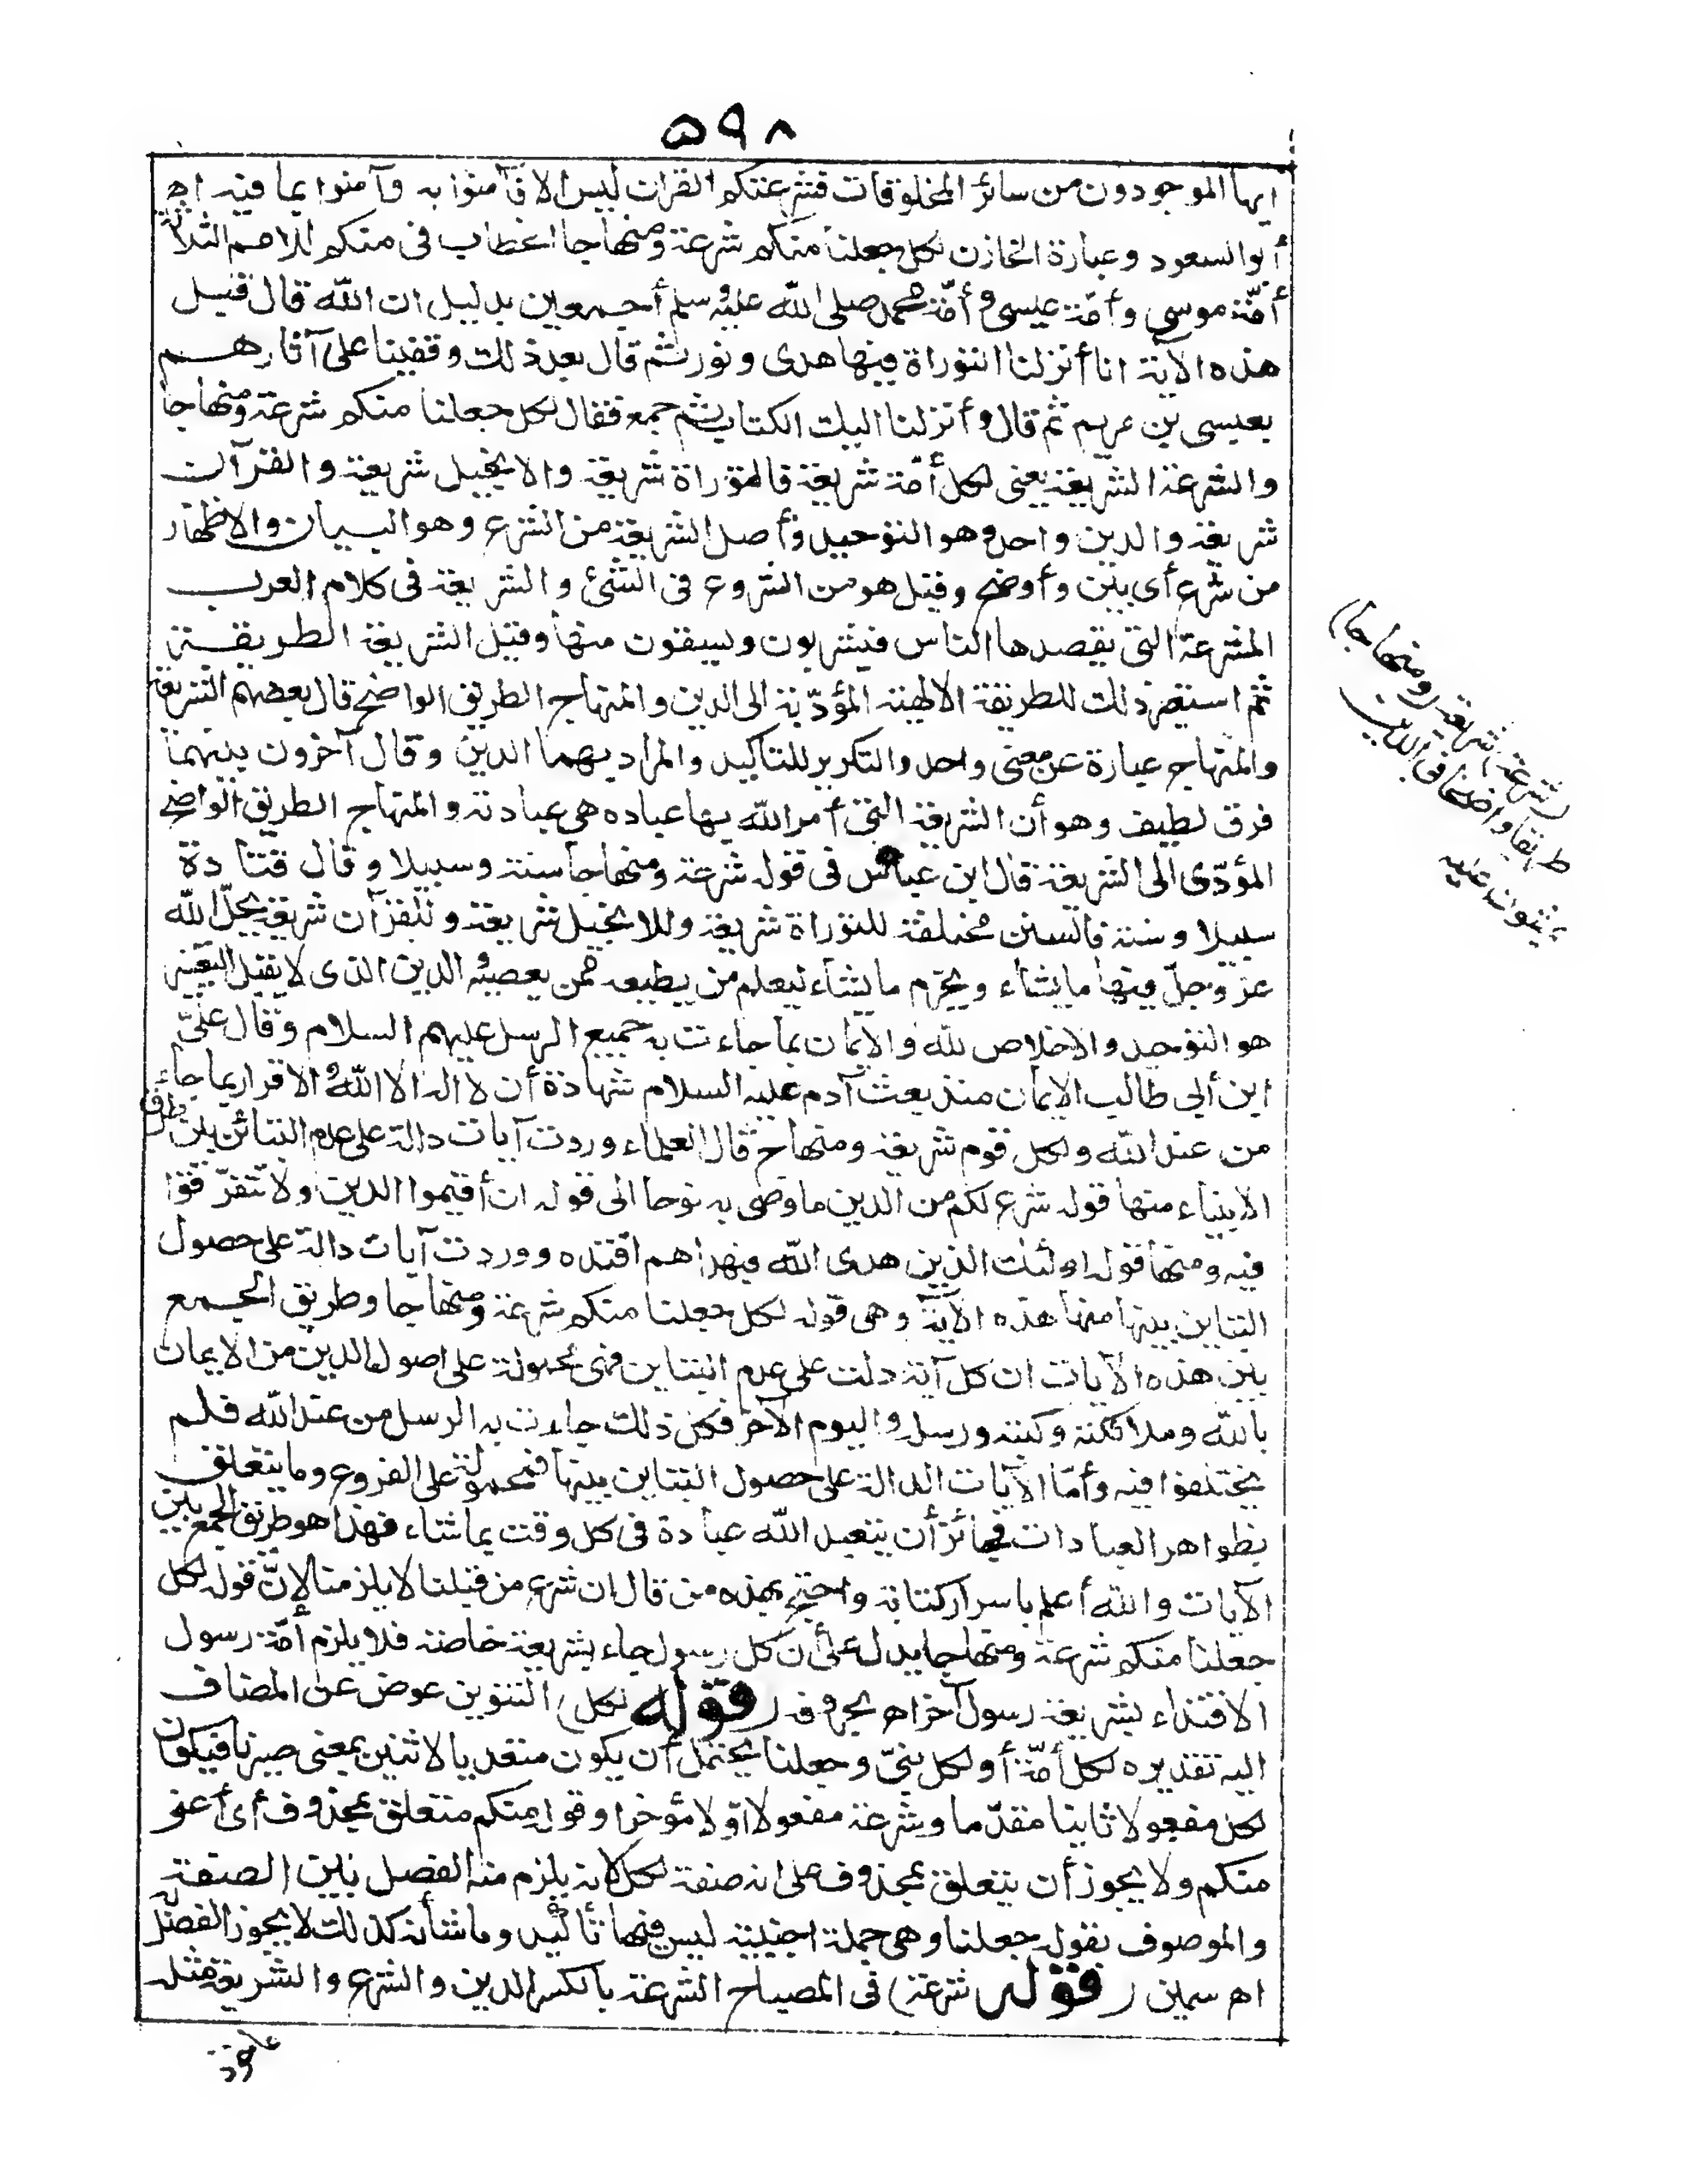 ٥٩٨
أيها الموجودون من سائر المخلوقات فشرعتكم القرآن ليس إلا فآمنوا به وآمنوا بما فيه اه
أبوالسعود وعبارة الخازن لكل جعلنا منكم شرعة ومنهاجا الخطاب في منكم للامم الثلاث
أمّة موسى وأمّة عيسى وأمّة محمد صلى الله عليه وسلم أجمعين بدليل ان الله قال قبل
هذه الآية انا أنزلنا التوراة فيها هدى ونور ثم قال بعد ذلك وقفينا على آثارهم
بعيسى بن مريم ثم قال وأنزلنا اليك الكتاب ثم جمع فقال لكل جعلنا منكم شرعة ومنهاجا
والشرعة الشريعة يعني لكل أمّة شريعة فالتوراة شريعة والانجيل شريعة والقرآن
شريعة والدين واحد وهو التوحيد وأصل الشريعة من الشرع وهو البيان والاظهار
من شرع أي بين وأوضح وقيل هو من الشروع في الشئ والشريعة في كلام العرب
المشرعة التي يقصدها الناس فيشربون ويسقون منها وقيل الشريعة الطريقة
ثم استعير ذلك للطريقة الالهية المؤدّية الى الدين والمنهاج الطريق الواضح قال بعضهم الشريعة
والمنهاج عبارة عن معنى واحد والتكرير للتاكيد والمراد بهما الدين وقال آخرون بينهما
فرق لطيف وهو أن الشريعة التي أمر الله بها عباده هي عبادته والمنهاج الطريق الواضح
المؤدّى الى الشريعة قال ابن عباس في قوله شرعة ومنهاجا سنة وسبيلا وقال قتادة
سبيلا وسنة فالسنن مختلفة للتوراة شريعة وللانجيل شريعة وللقرآن شريعة يحلّ الله
عز وجلّ فيها ما يشاء ويحرّم ما يشاء ليعلم من يطيعه ممن يعصيه والدين الذى لا يقبل التغيير
هو التوحيد والاخلاص لله والايمان بما جاءت به جميع الرسل عليهم السلام وقال عليّ
ابن أبي طالب الايمان منذ بعث آدم عليه السلام شهادة أن لا اله الا الله والاقرار بما جاء
من عند الله ولكل قوم شريعة ومنهاج قال العلماء وردت آيات دالة على عدم التباين بين طرق
الانبياء منها قوله شرع لكم من الدين ما وصى به نوحا الى قوله ان أقيموا الدين ولا تتفرّقوا
فيه ومنها قوله اولئك الذين هدى الله فبهداهم اقتده ووردت آيات دالة على حصول
التباين بينها منها هذه الآية وهى قوله لكل جعلنا منكم شرعة ومنهاجا وطريق الجمع
بين هذه الآيات ان كل آية دلت على عدم التباين فهى محمولة على اصول الدين من الايمان
بالله وملائكته وكتبه ورسله واليوم الآخر فكل ذلك جاءت به الرسل من عند الله فلم
يختلفوا فيه وأمّا الآيات الدالة على حصول التباين بينها فمحمولة على الفروع وما يتعلق
بظواهر العبادات فجائز أن يتعبد الله عباده في كل وقت بما شاء فهذا هو طريق الجمع بين
الآيات والله أعلم باسرار كتابه واحتج بهذه من قال ان شرع من قبلنا لا يلزمنا لإنّ قوله لكل
جعلنا منكم شرعة ومنهاجا يدل على أن كل رسول جاء بشريعة خاصة فلا يلزم أمّة رسول
الاقتداء بشريعة رسول آخر اه بحروفه (قوله لكل) التنوين عوض عن المضاف
اليه تقديره لكل أمّة أو لكل نبيّ وجعلنا يحتمل أن يكون متعديا لاثنين بمعنى صيرنا فيكون
لكل مفعولا ثانيا مقدّما وشرعة مفعولا اوّلا مؤخرا وقوله منكم متعلق بمحذوف أى أعني
منكم ولا يجوز أن يتعلق بمحذوف على انه صفة لكل لانه يلزم منه الفصل بين الصفة
والموصوف بقوله جعلنا وهى جملة اجنبية ليس فيها تأكيد وما شأنه كذلك لا يجوز الفصل به
اه سمين (قوله شرعة) في المصباح الشرعة بالكسر الدين والشرع والشريعة مثله
(شرعة) شريعة (ومنهاجا)
طريقا واضحا في الدين
يمشون عليه